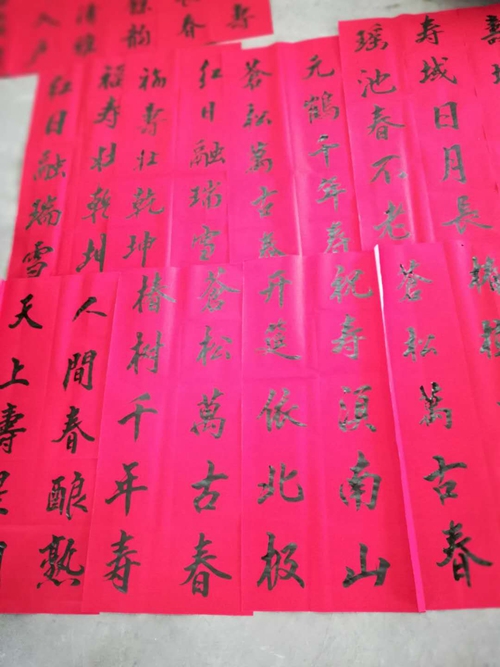 寿域日月長
瑶池春不老
元鶴千年寿
蒼松萬古春
红日融瑞雪
福寿壮乾坤
福寿壮乾坤
红日融瑞雪
蒼松萬古春
祝寿湏南山
开筵依北极
蒼松萬古春
椿樹千年寿
人間春酿熟
天上壽